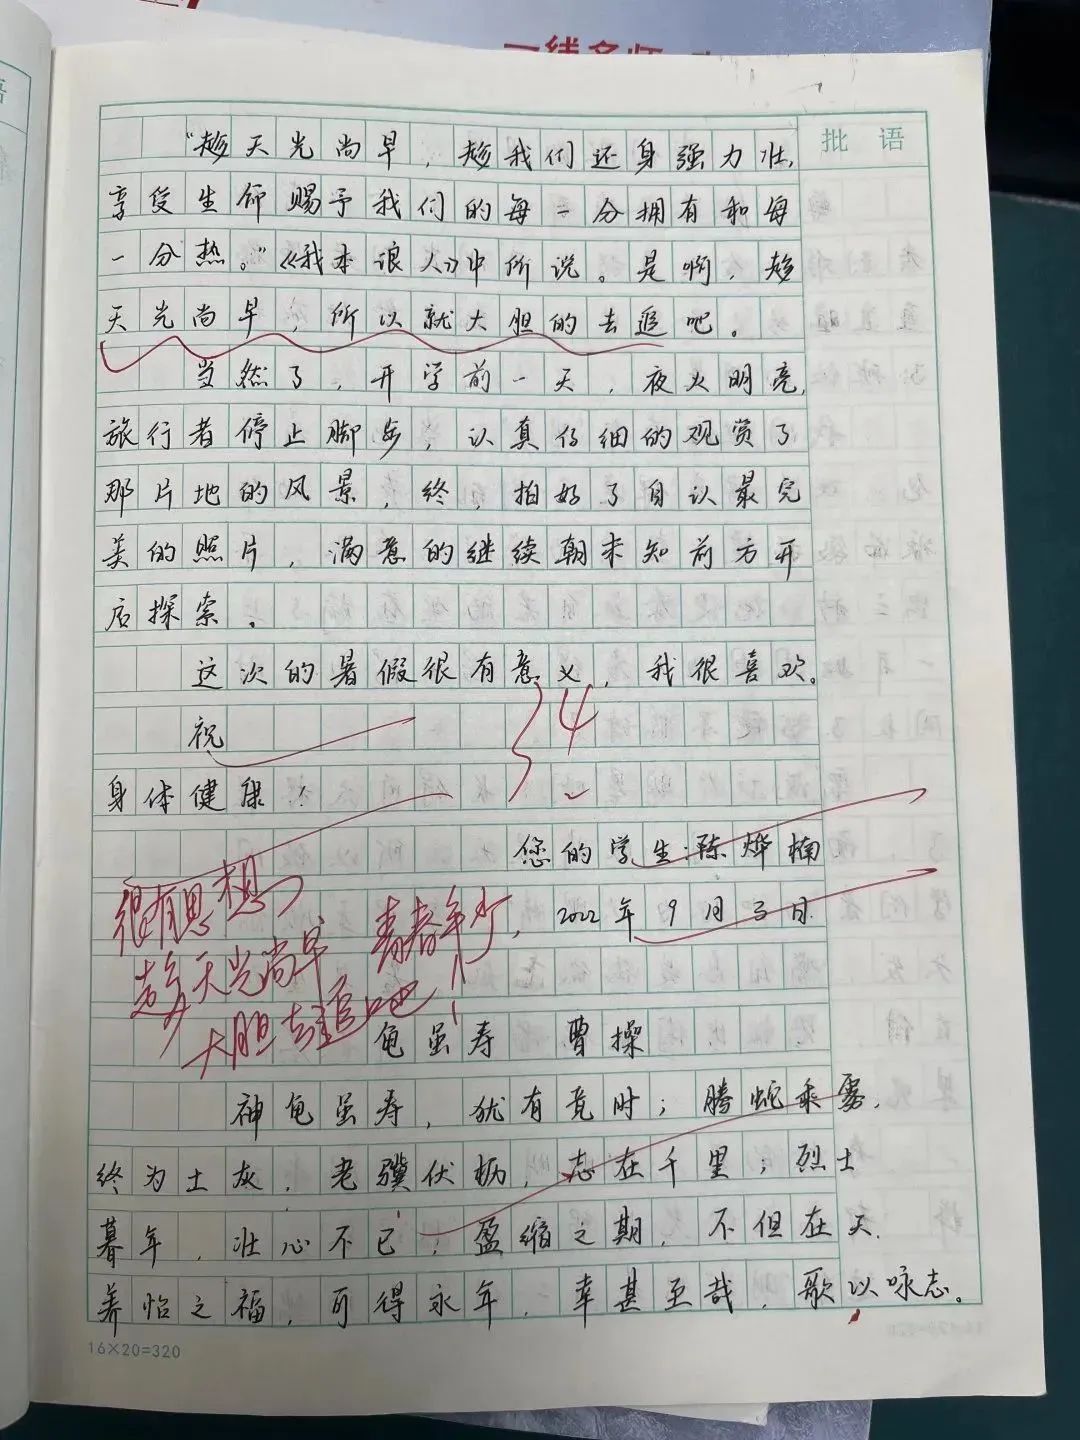 批语
"趁天光尚早，趁我们还身强力壮，
享受生命赐予我们的每一分拥有和每
一分热。"《我本浪人》中所说。是啊，趁
天光尚早，所以就大胆的去追吧。
当然了，开学前一天，夜火明亮，
旅行者停止脚步，认真仔细的观赏了
那片地的风景，终，拍好了自认最完
美的照片，满意的继续朝未知前方开
启探索。
这次的暑假很有意义，我很喜欢。
祝
4
身体健康！
您的学生：陈烨楠
2022年9月3日
很有思想
趁天光尚早 青春年少，
大胆去追吧！
龟虽寿 曹操
神龟虽寿，犹有竟时；腾蛇乘雾，
终为土灰，老骥伏枥，志在千里；烈士
暮年，壮心不已；盈缩之期，不但在天，
养怡之福，可得永年，幸甚至哉，歌以咏志。
16×20=320